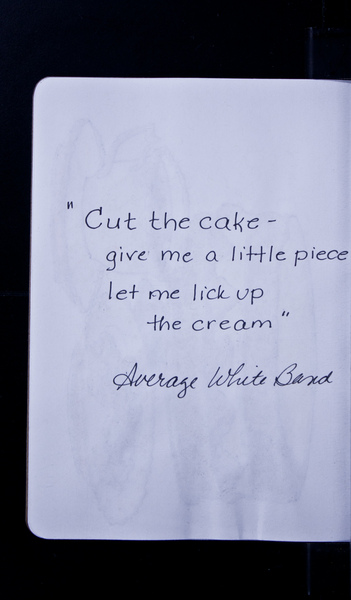 "Cut the cake -
give me a little piece
let me lick up
the cream"
Average White Band